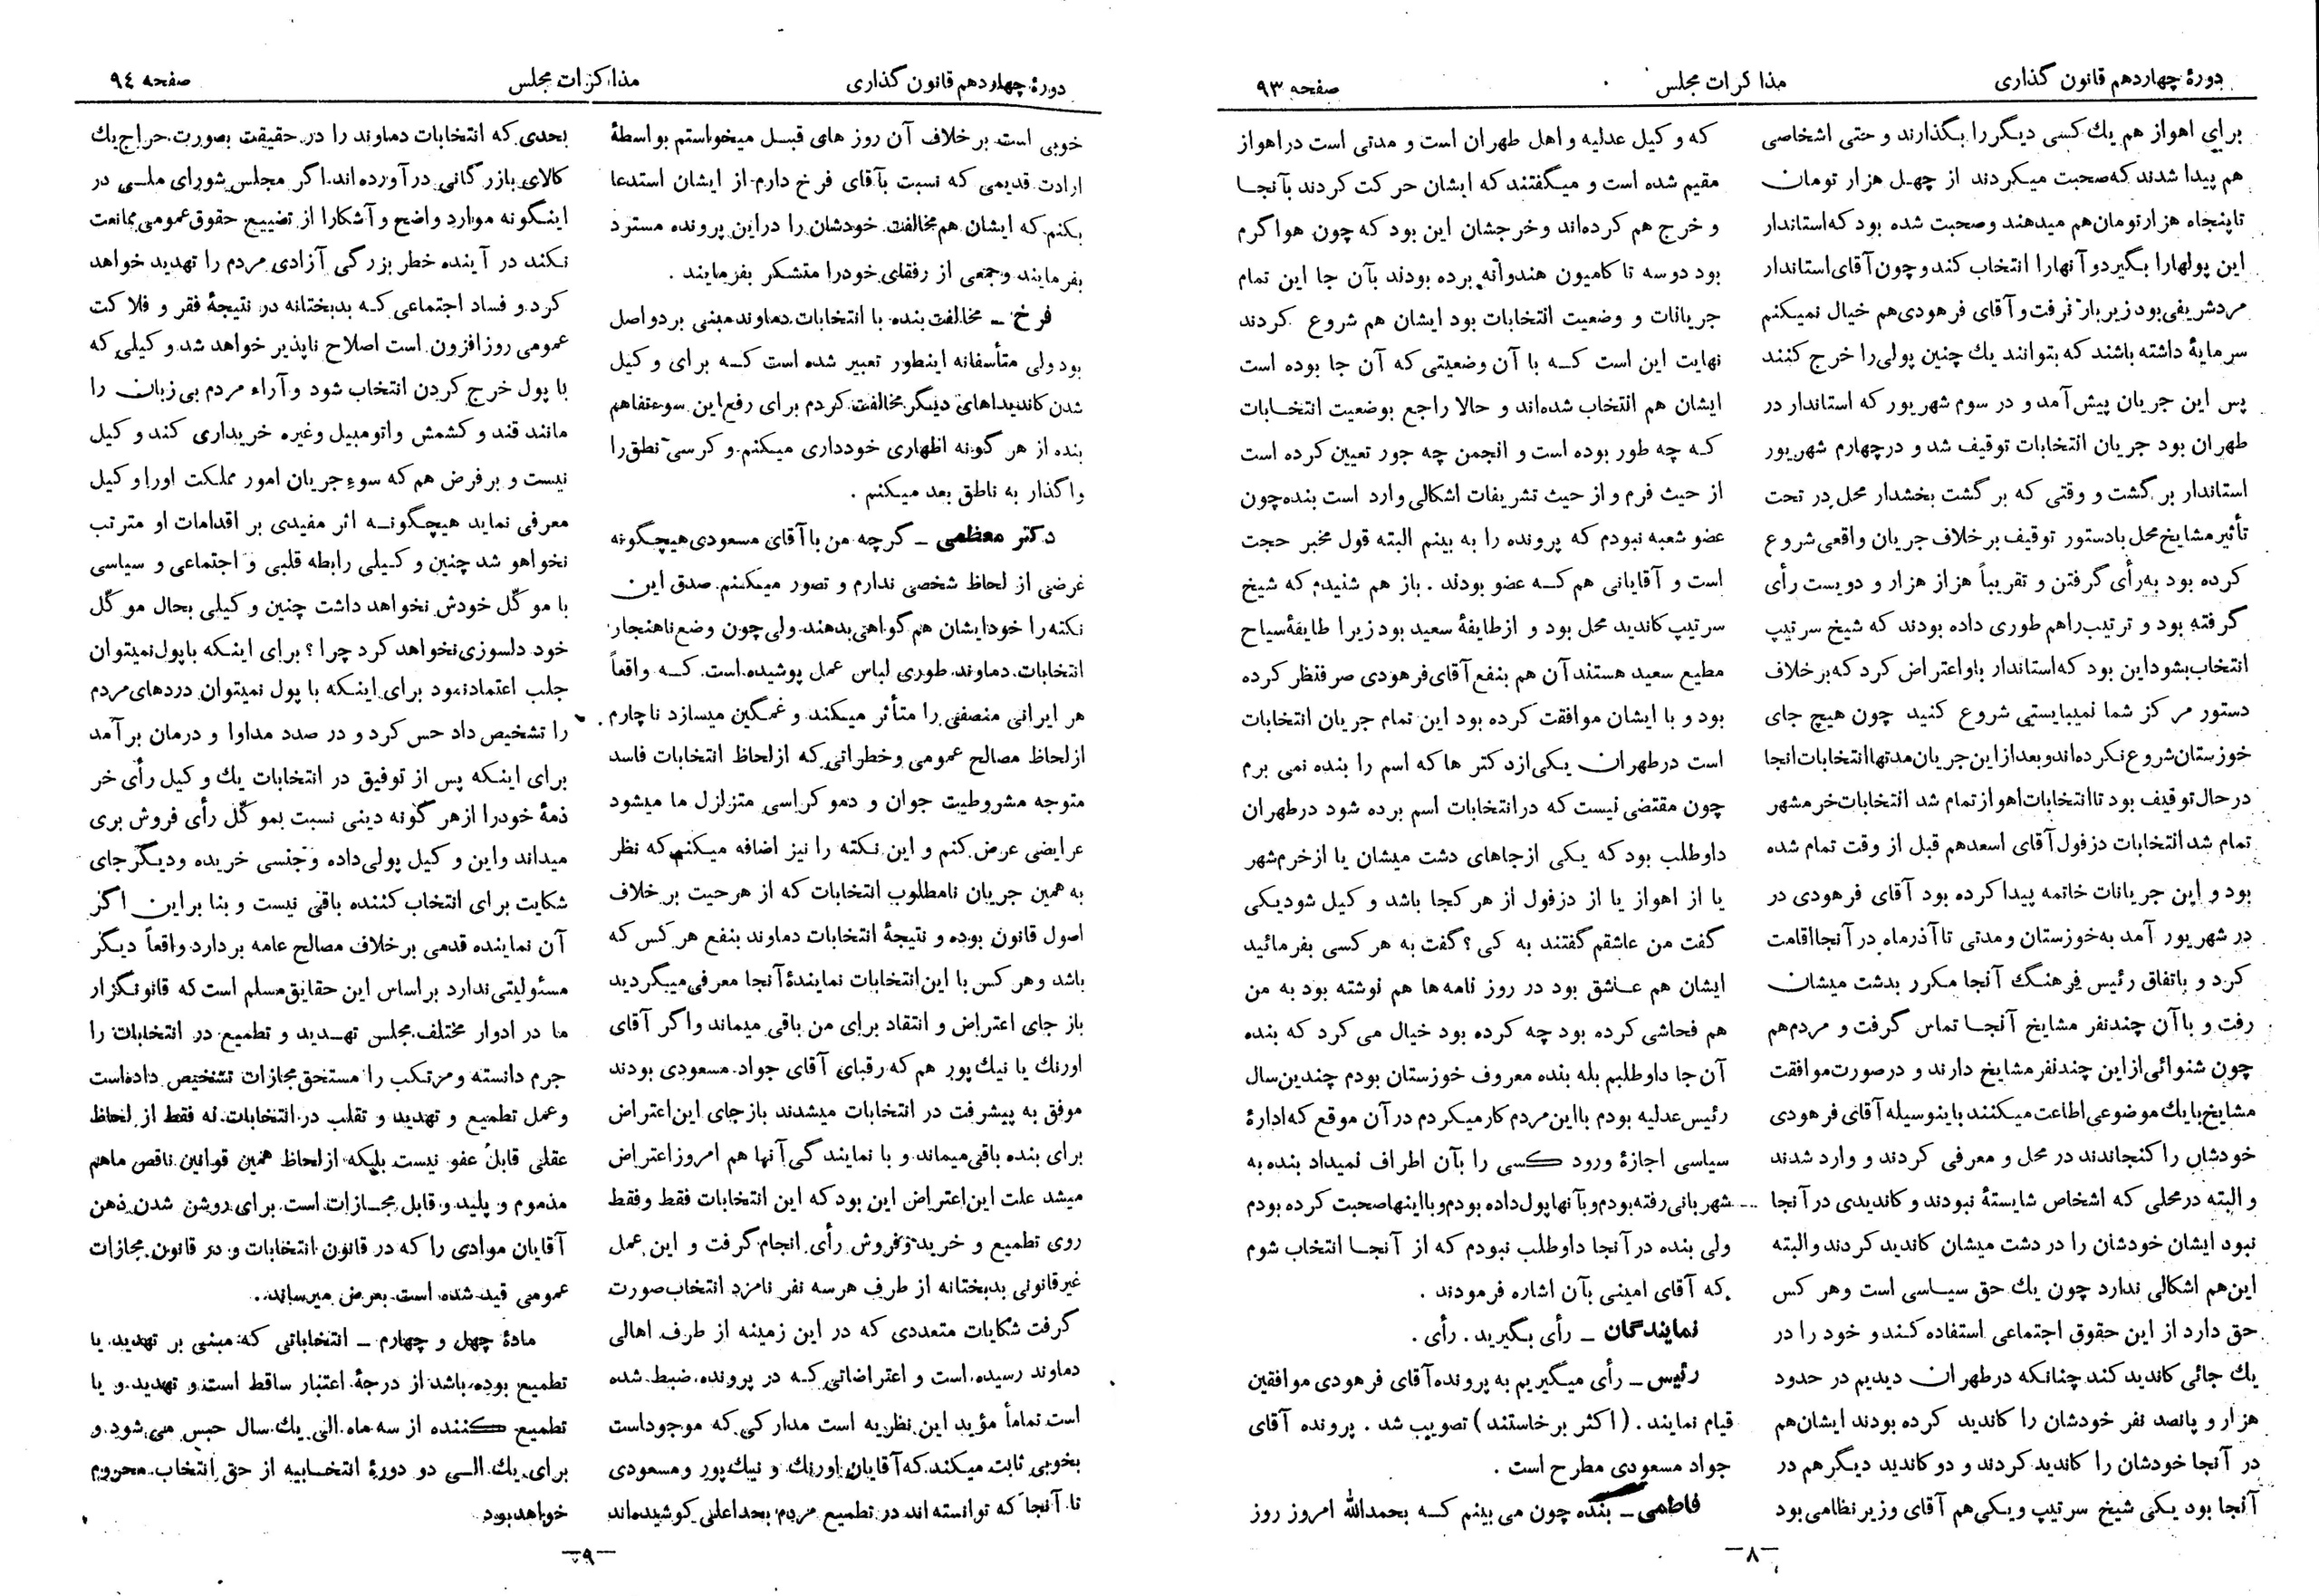 دورهٔ چهاردهم قانون گذاری
مذاکرات مجلس
صفحه ۹۳
برای اهواز هم یك کسی دیگر را بگذارند و حتی اشخاصی
هم پیدا شدند که صحبت میکردند از چهل هزار تومان
تا پنجاه هزار تومان هم میدهند وصحبت شده بود که استاندار
این پولهارا بگیرد و آنهارا انتخاب کند و چون آقای استاندار
مردشریفی بود زیر بار نرفت و آقای فرهودی هم خیال نمیکنم
سرمایهٔ داشته باشند که بتوانند یك چنین پولی را خرج کنند
پس این جریان پیش آمد و در سوم شهریور که استاندار در
طهران بود جریان انتخابات توقیف شد و درچهارم شهریور
استاندار برگشت و وقتی که برگشت بخشدار محل در تحت
تأثیر مشایخ محل بادستور توقیف برخلاف جریان واقعی شروع
کرده بود به رأی گرفتن و تقریباً هزار هزار و دویست رأی
گرفته بود و ترتیب راهم طوری داده بودند که شیخ سرتیپ
انتخاب بشود این بود که استاندار باو اعتراض کرد که برخلاف
دستور مرکز شما نمیبایستی شروع کنید چون هیچ جای
خوزستان شروع نکرده اند و بعد از این جریان مدتها انتخابات انجا
درحال توقیف بود تا انتخابات اهواز تمام شد انتخابات خرمشهر
تمام شد انتخابات دزفول آقای اسعدهم قبل از وقت تمام شده
بود و این جریانات خاتمه پیدا کرده بود آقای فرهودی در
در شهریور آمد به خوزستان و مدتی تا آذرماه در آنجا اقامت
کرد و باتفاق رئیس فرهنگ آنجا مکرر بدشت میشان
رفت و با آن چند نفر مشایخ آنجا تماس گرفت و مردم هم
چون شنوائی از این چند نفر مشایخ دارند و درصورت موافقت
مشایخ با یك موضوعی اطاعت میکنند باینوسیله آقای فرهودی
خودشان را گنجاندند در محل و معرفی کردند و وارد شدند
و البته در محلی که اشخاص شایستهٔ نبودند و کاندیدی در آنجا
نبود ایشان خودشان را در دشت میشان کاندید کردند والبته
این هم اشکالی ندارد چون یك حق سیاسی است وهر کس
حق دارد از این حقوق اجتماعی استفاده کند و خود را در
یك جائی کاندید کند چنانکه درطهران دیدیم در حدود
هزار و پانصد نفر خودشان را کاندید کرده بودند ایشان هم
در آنجا خودشان را کاندید کردند و دو کاندید دیگر هم در
آنجا بود یکی شیخ سرتیپ ویکی هم آقای وزیر نظامی بود
که وکیل عدلیه و اهل طهران است و مدتی است دراهواز
مقیم شده است و میگفتند که ایشان حرکت کردند بآنجا
و خرج هم کرده‌اند و خرجشان این بود که چون هوا گرم
بود دوسه تا کامیون هندوانه برده بودند بآن جا این تمام
جریانات و وضعیت انتخابات بود ایشان هم شروع کردند
نهایت این است که با آن وضعیتی که آن جا بوده است
ایشان هم انتخاب شده‌اند و حالا راجع بوضعیت انتخابات
که چه طور بوده است و انجمن چه جور تعیین کرده است
از حیث فرم و از حیث تشریفات اشکالی وارد است بنده چون
عضو شعبه نبودم که پرونده را به بینم البته قول مخبر حجت
است و آقایانی هم که عضو بودند . باز هم شنیدم که شیخ
سرتیپ کاندید محل بود و ازطایفهٔ سعید بود زیرا طایفهٔ سیاح
مطیع سعید هستند آن هم بنفع آقای فرهودی صرفنظر کرده
بود و با ایشان موافقت کرده بود این تمام جریان انتخابات
است درطهران یکی از دکتر ها که اسم را بنده نمی برم
چون مقتضی نیست که در انتخابات اسم برده شود درطهران
داوطلب بود که یکی از جاهای دشت میشان یا از خرم شهر
یا از اهواز یا از دزفول از هر کجا باشد وکیل شود یکی
گفت من عاشقم گفتند به کی ؟ گفت به هر کسی بفرمائید
ایشان هم عاشق بود در روز نامه‌ها هم نوشته بود به من
هم فحاشی کرده بود چه کرده بود خیال می کرد که بنده
آن جا داوطلبم بله بنده معروف خوزستان بودم چندین سال
رئیس عدلیه بودم با این مردم کار میکردم در آن موقع که ادارهٔ
سیاسی اجازهٔ ورود کسی را بآن اطراف نمیداد بنده به
شهربانی رفته بودم و بآنها پول داده بودم و با اینها صحبت کرده بودم
ولی بنده در آنجا داوطلب نبودم که از آنجا انتخاب شوم
که آقای امینی بآن اشاره فرمودند .
نمایندگان ــ رأی بگیرید . رأی .
رئیس ــ رأی میگیریم به پرونده آقای فرهودی موافقین
قیام نمایند . (اکثر برخاستند) تصویب شد . پرونده آقای
جواد مسعودی مطرح است .
فاطمی ــ بنده چون می بینم که بحمدالله امروز روز
ــ۸ــ
دورهٔ چهاردهم قانون گذاری
مذاکرات مجلس
صفحه ۹٤
خوبی است برخلاف آن روز های قبل میخواستم بواسطهٔ
ارادت قدیمی که نسبت بآقای فرخ دارم از ایشان استدعا
بکنم که ایشان هم مخالفت خودشان را دراین پرونده مسترد
بفرمایند وجمعی از رفقای خودرا متشکر بفرمایند .
فرخ ــ مخالفت بنده با انتخابات دماوند مبنی بر دو اصل
بود ولی متأسفانه اینطور تعبیر شده است که برای وکیل
شدن کاندیداهای دیگر مخالفت کردم برای رفع این سوءتفاهم
بنده از هر گونه اظهاری خودداری میکنم و کرسی نطق را
واگذار به ناطق بعد میکنم .
دکتر معظمی ــ گرچه من با آقای مسعودی هیچگونه
غرضی از لحاظ شخصی ندارم و تصور میکنم صدق این
نکته را خود ایشان هم گواهی بدهند ولی چون وضع ناهنجار
انتخابات دماوند طوری لباس عمل پوشیده است که واقعاً
هر ایرانی منصفی را متأثر میکند و غمگین میسازد ناچارم
ازلحاظ مصالح عمومی وخطراتی که ازلحاظ انتخابات فاسد
متوجه مشروطیت جوان و دموکراسی متزلزل ما میشود
عرایضی عرض کنم و این نکته را نیز اضافه میکنم که نظر
به همین جریان نامطلوب انتخابات که از هرحیت برخلاف
اصول قانون بوده و نتیجهٔ انتخابات دماوند بنفع هرکس که
باشد وهر کس با این انتخابات نمایندهٔ آنجا معرفی میگردید
باز جای اعتراض و انتقاد برای من باقی میماند واگر آقای
اورنك یا نیك پور هم که رقبای آقای جواد مسعودی بودند
موفق به پیشرفت در انتخابات میشدند باز جای این اعتراض
برای بنده باقی میماند و با نمایندگی آنها هم امروز اعتراض
میشد علت این اعتراض این بود که این انتخابات فقط وفقط
روی تطمیع و خرید و فروش رأی انجام گرفت و این عمل
غیرقانونی بدبختانه از طرف هرسه نفر نامزد انتخاب صورت
گرفت شکایات متعددی که در این زمینه از طرف اهالی
دماوند رسیده است و اعتراضاتی که در پرونده ضبط شده
است تماماً مؤید این نظریه است مدارکی که موجوداست
بخوبی ثابت میکند که آقایان اورنك و نیك پور و مسعودی
تا آنجا که توانسته‌اند در تطمیع مردم بحداعلی کوشیده‌اند
بحدی که انتخابات دماوند را در حقیقت بصورت حراج یك
کالای بازرگانی در آورده‌اند. اگر مجلس شورای ملی در
اینگونه موارد واضح و آشکارا از تضییع حقوق عمومی ممانعت
نکند در آینده خطر بزرگی آزادی مردم را تهدید خواهد
کرد و فساد اجتماعی که بدبختانه در نتیجهٔ فقر و فلاکت
عمومی روزافزون است اصلاح ناپذیر خواهد شد وکیلی که
با پول خرج کردن انتخاب شود و آراء مردم بی‌زبان را
مانند قند و کشمش و اتومبیل وغیره خریداری کند وکیل
نیست و برفرض هم که سوء جریان امور مملکت اورا وکیل
معرفی نماید هیچگونه اثر مفیدی بر اقدامات او مترتب
نخواهد شد چنین وکیلی رابطه قلبی و اجتماعی و سیاسی
با موکّل خودش نخواهد داشت چنین وکیلی بحال موکّل
خود دلسوزی نخواهد کرد چرا ؟ برای اینکه با پول نمیتوان
جلب اعتماد نمود برای اینکه با پول نمیتوان دردهای مردم
را تشخیص داد حس کرد و در صدد مداوا و درمان برآمد
برای اینکه پس از توفیق در انتخابات یك وکیل رأی خر
ذمهٔ خودرا ازهر گونه دینی نسبت بموکّل رأی فروش بری
میداند واین وکیل پولی داده وجنسی خریده ودیگر جای
شکایت برای انتخاب کننده باقی نیست و بنا براین اگر
آن نماینده قدمی برخلاف مصالح عامه بردارد واقعاً دیگر
مسئولیتی ندارد براساس این حقایق مسلم است که قانونگزار
ما در ادوار مختلف مجلس تهدید و تطمیع در انتخابات را
جرم دانسته و مرتکب را مستحق مجازات تشخیص داده‌است
وعمل تطمیع و تهدید و تقلب در انتخابات نه فقط از لحاظ
عقلی قابل عفو نیست بلیکه ازلحاظ همین قوانین ناقص ماهم
مذموم و پلید و قابل مجازات است برای روشن شدن ذهن
آقایان موادی را که در قانون انتخابات و در قانون مجازات
عمومی قید شده است بعرض میرساند.
مادهٔ چهل و چهارم ــ انتخاباتی که مبنی بر تهدید یا
تطمیع بوده باشد از درجهٔ اعتبار ساقط است و تهدید و یا
تطمیع کننده از سه ماه الی یك سال حبس می‌شود و
برای یك الی دو دورهٔ انتخابیه از حق انتخاب محروم
خواهدبود
ــ۹ــ